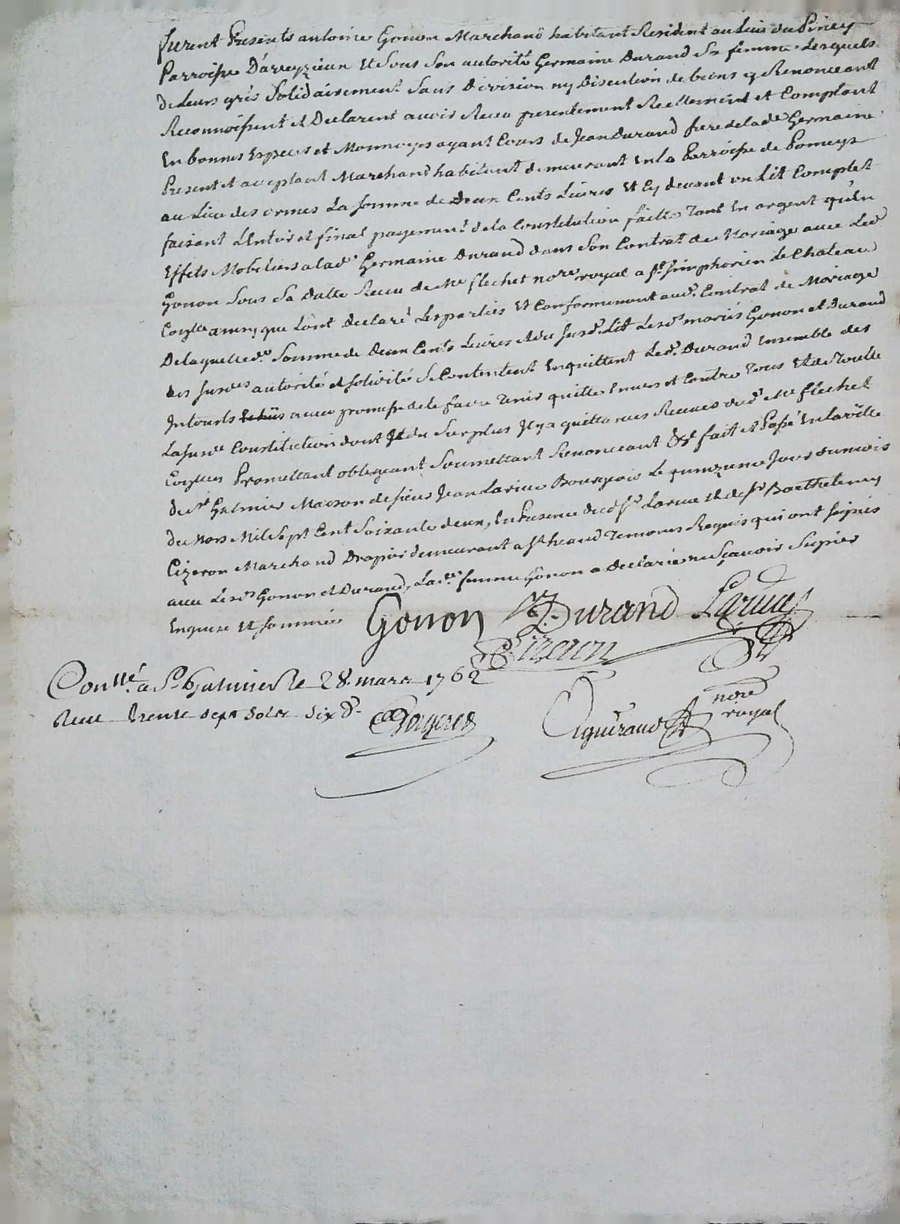 furent Presents antoine Gonon Marchand habitant Resident au Lieu du Piney
Parroisse Daveyzieux Et Sous Son autorité Germaine Durand Sa femme Lesquels
de Leurs grés Solidairement Sans Division ny Discution de biens y Renonceant
Reconnoissent et Declarent avoir Receu presentement Reellement et Comptant
En bonnes Especes et Monnoyes ayant Cours de Jean Durand frere de lade Germaine
Present et acceptant Marchand habitant demeurant En la Parroisse de Pomeys
au Lieu des ormes La somme de Deux Cents Livres Et Cy devant un Lit Complet
faisant L'entier et final payement de la Constitution faitte Tant En argent qu'En
Effets Mobiliers a lad. Germaine Durand dans Son Contrat de Mariage avec Led.
Gonon Sous Sa Datte Receu de Me flechet nore royal a St Simphorien le Chateau
ainsy que L'ont declaré Les parties Et Conformement aud. Contrat de Mariage
De laquelle de Somme de Deux Cents Livres et du susd. Lit Les ds mariés Gonon et Durand
des susdes autorité et soliditè Se Contentent En quittent Led. Durand Ensemble des
Interets avec promesse de le faire Tenir quitte Envers et Contre Tous Et de Toutte
La susde Constitution dont du Surplus Il y a quittances Receues dud. Me flechet
Promettant obligeant Soumettant Renonceant &a fait et Passé En la ville
de St Galmier Maison de sieur Jean Larue Bourgeois Le quinzieme Jour du mois
de Mars Mil Sept Cent Soixante deux, En Presence dud. sr Larue Et de sr Barthelemy
Cizeron Marchand Drapier demeurant a St heand Temoins Requis qui ont signés
avec Les ds Gonon et Durand, Lade femme Gonon a Declaré ne Sçavoir Signer
Enquise Et Sommée Gonon J Durand Larue
Cizeron
Conllé a St Galmier le 28 mars 1762
Receu trente sept Sols Six d.
nore
royal